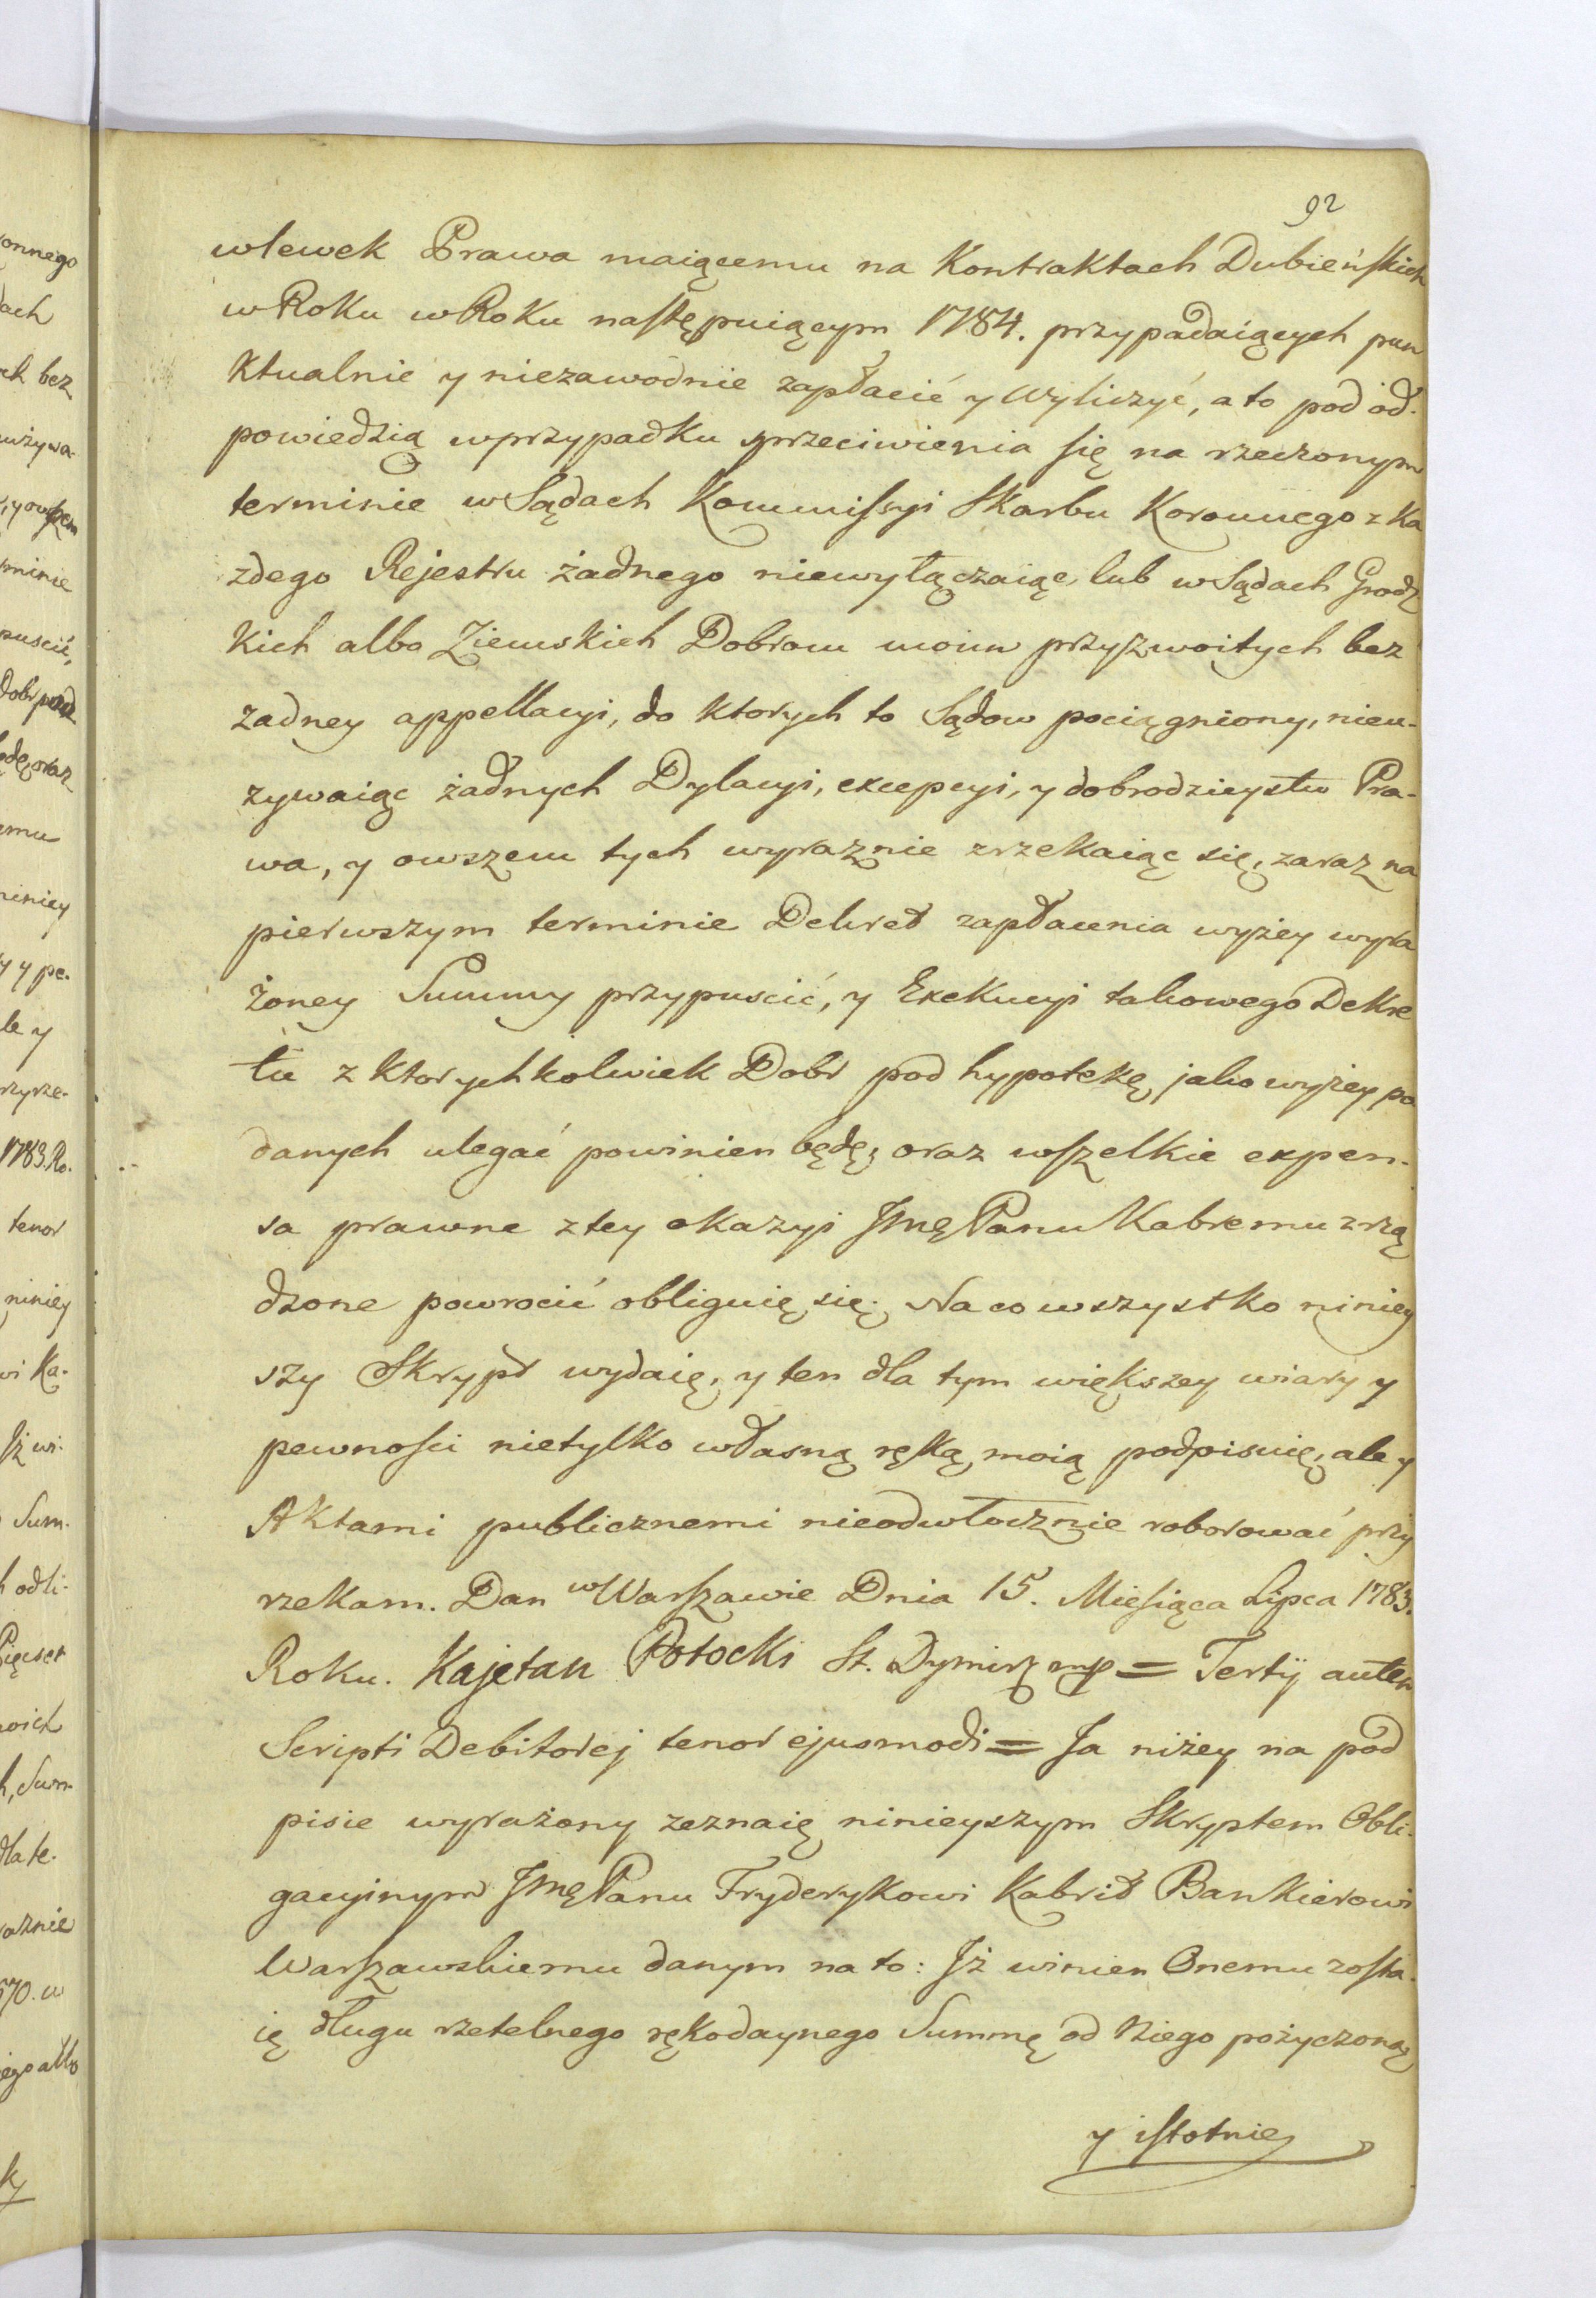 92
wlewek Prawa maiącemu na Kontraktach Dubieńskich
w Roku w Roku następuiącym 1784. przypadaiących pun
ktualnie y niezawodnie zapłacić y wyliczyć, a to pod od-
powiedzią w przypadku sprzeciwienia się na rzeczonym
terminie w Sądach Kommissyi Skarbu Koronnego z Ka
zdego Rejestru żadnego niewyłączaiąc, lub w Sądach Grodz
kich albo Ziemskich Dobrom moim przyzwoitych bez
zadney appellacyi, do ktorych to Sądow pociągniony, nieu-
zywaiąc żadnych Dylacyi, excepcyi, y dobrodzieystw Pra-
wa, y owszem tych wyraznie zrzekaiąc się, zaraz na
pierwszym terminie Dekret zapłacenia wyżey wyra
żoney Summy przypuscić, y Exekucyi takowego Dekre
tu z ktorychkolwiek Dobr pod hypotekę, jako wyżey, po
danych ulegać powinien będę, oraz wszelkie expen-
sa prawne z tey okazyi JmęPanu Kabremu zrzą
dzone powrocić obliguię się. Na co wszystko niniey
szy Skrypt wydaię, y ten dla tym większey wiary y
pewności nietylko własną ręką moią podpisuię, ale y
Aktami publicznemi nieodwłocznie roborować przy
rzekam. Dan w Warszawie Dnia 15. Miesiąca Lipca 1783.
Roku. Kajetan Potocki St. Dymirz mp = Tertÿ autem
Scripti Debitorej tenor ejusmodi = Ja niżey na pod
pisie wyrażony zeznaię ninieyszym Skryptem Obli-
gacyjnym JmęPanu Fryderykowi Kabrit Bankierowi
Warszawskiemu danym na to: Jż winien Onemu zosta-
ię długu rzetelnego rękodaynego Summę od Niego pożyczoną
y istotnie
onnego
ach
ch bez
używa-
minie
puscić,
emu
niniey
y y pe-
le y
rzyrze-
1783. Ro-
tenor
niniey
wi Ka-
Jż wi-
Sum-
odli-
Pięcset
moich
h, Sum-
dla te-
aznie
570. w
iego albo